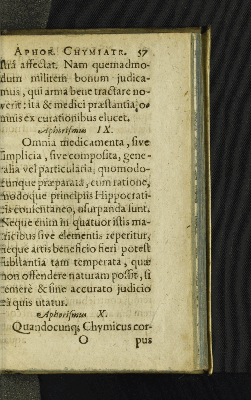 APHOR. CHYMIATR. 57
stra affectat. Nam quemadmo-
dum militem bonum judica-
mus, qui arma bene tractare no-
verit: ita & medici præstantia, o-
mnis ex curationibus elucet.
Aphorismus IX.
Omnia medicamenta, sive
simplicia, sive composita, gene-
ralia vel particularia, quomodo-
cunque præparata, cum ratione,
modoque principiis Hippocrati-
cis convientaneo, usurpanda sunt.
Neque enim in quatuor istis ma-
tricibus sive elementis reperitur,
neque artis beneficio fieri potest
substantia tam temperata, quæ
non offendere naturam possit, si
temerè & sine accurato judicio
ea quis utatur.
Aphorismus X.
Quandocunq; Chymicus cor-
O pus